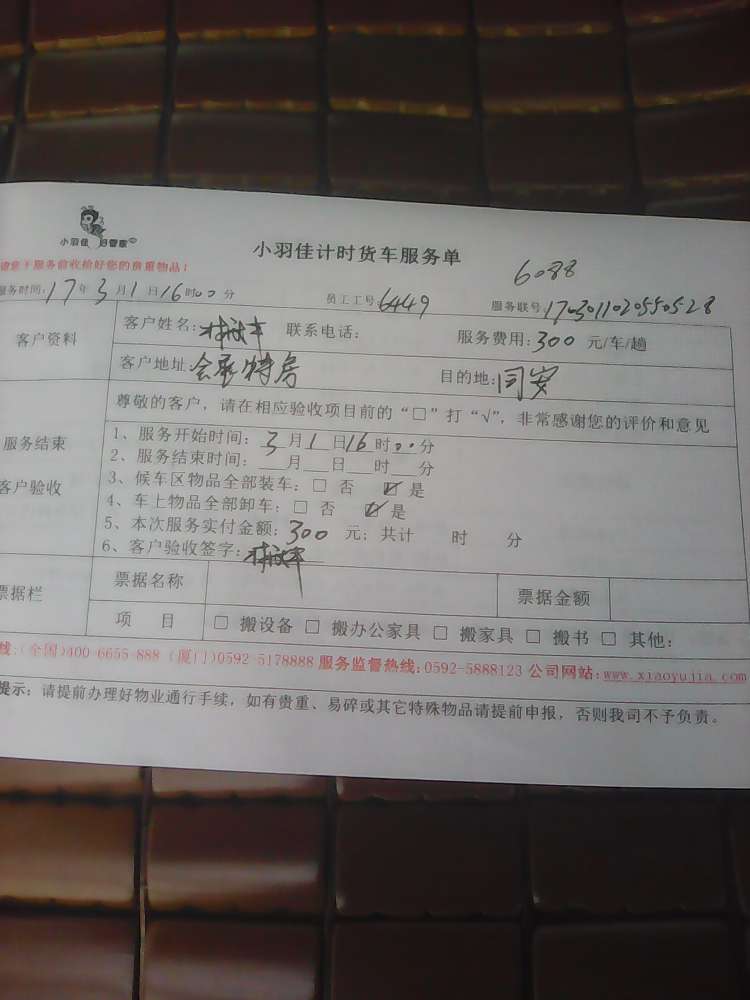 小羽佳 管家
小羽佳计时货车服务单
请您于服务前收拾好您的贵重物品！
6088
服务时间：17年3月1日16时00分 员工工号：6449 服务联号：1703011020550528
客户资料
客户姓名： 联系电话： 服务费用：300 元/车/趟
客户地址：会展 特房 目的地：同安
服务结束
客户验收
尊敬的客户，请在相应验收项目前的“□”打“√”，非常感谢您的评价和意见
1、服务开始时间：3月1日16时00分
2、服务结束时间：___月___日___时___分
3、候车区物品全部装车：□ 否 ☑ 是
4、车上物品全部卸车：□ 否 ☑ 是
5、本次服务实付金额：300 元；共计 时 分
6、客户验收签字：
票据栏 票据名称 票据金额
项 目 □ 搬设备 □ 搬办公家具 □ 搬家具 □ 搬书 □ 其他：
线：(全国)400-6655-888 (厦门)0592-5178888 服务监督热线：0592-5888123 公司网站：www.xiaoyujia.com
提示：请提前办理好物业通行手续，如有贵重、易碎或其它特殊物品请提前申报，否则我司不予负责。